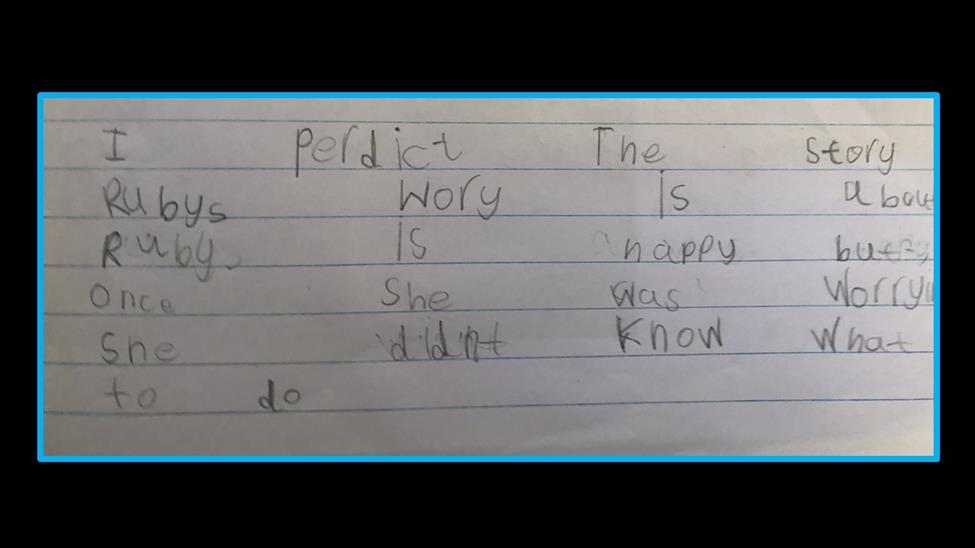 I perdict The story
Rubys wory is abou
Ruby is happy but
Once She was Worry
She didnt know What
to do